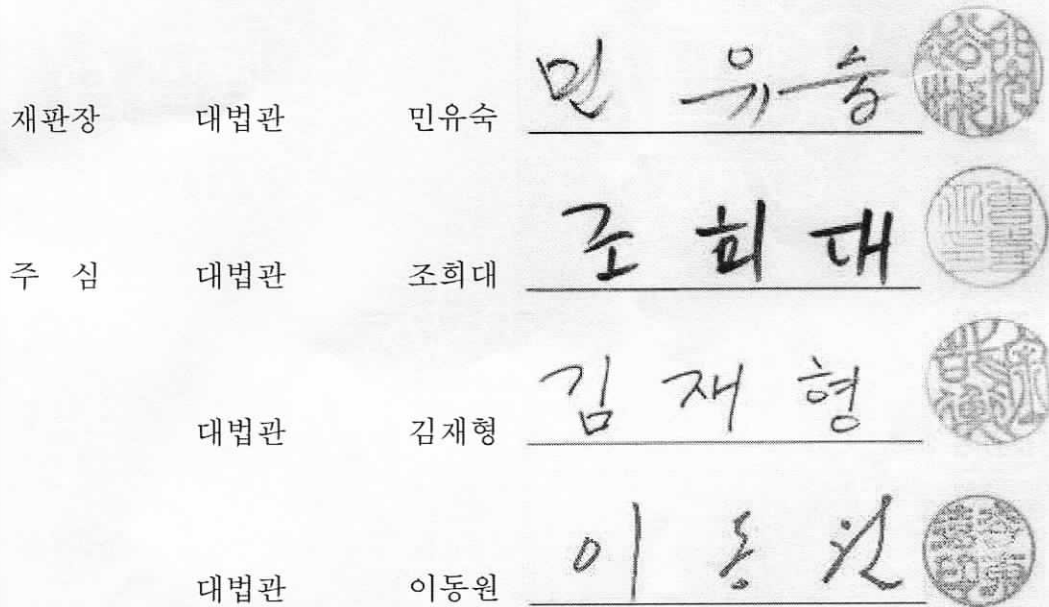 재판장 대법관 민유숙 민 유 숙
주 심 대법관 조희대 조 희 대
대법관 김재형 김 재 형
대법관 이동원 이 동 원